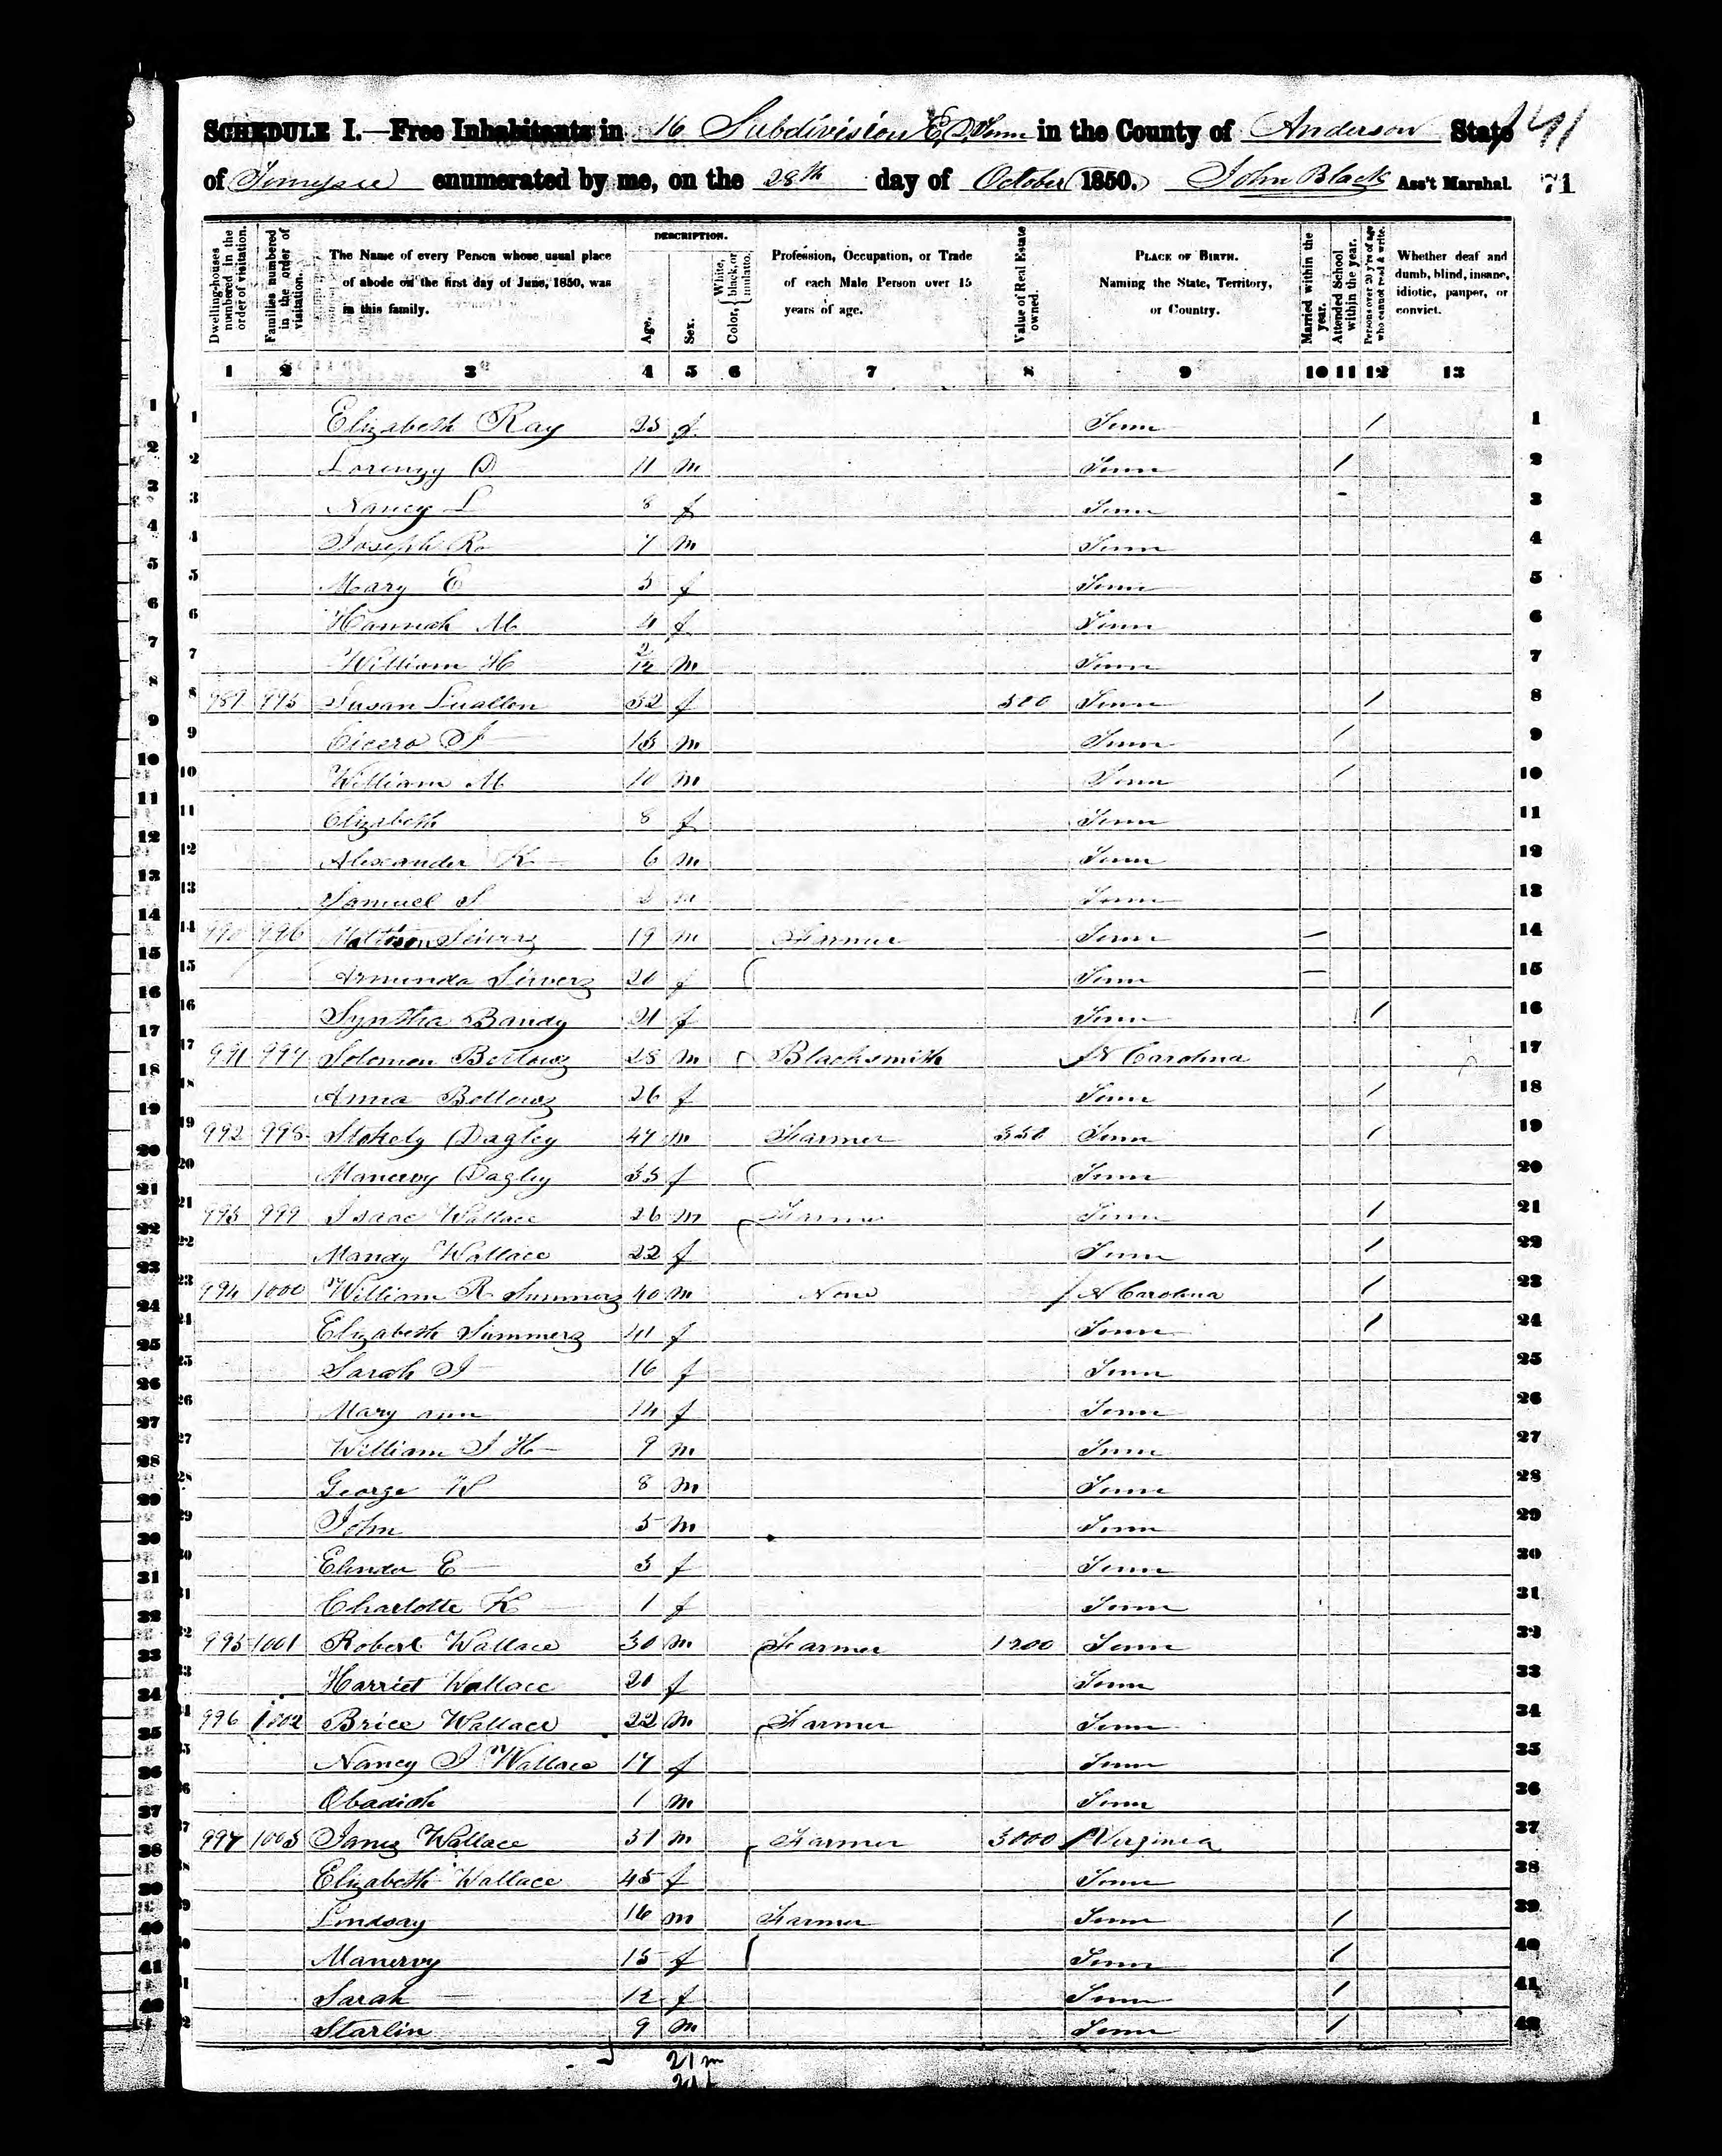 1291
SCHEDULE I.—Free Inhabitants in 16 Subdivision E. D. Tenn in the County of Anderson State
of Tennessee enumerated by me, on the 28th day of October 1850. John Black Ass't Marshal. 71
Dwelling-houses numbered in the order of visitation.
Families numbered in the order of visitation.
The Name of every Person whose usual place of abode on the first day of June, 1850, was in this family.
DESCRIPTION.
Age.
Sex.
Color, White, black, or mulatto.
Profession, Occupation, or Trade of each Male Person over 15 years of age.
Value of Real Estate owned.
PLACE OF BIRTH. Naming the State, Territory, or Country.
Married within the year.
Attended School within the year.
Persons over 20 y'rs of age who cannot read & write.
Whether deaf and dumb, blind, insane, idiotic, pauper, or convict.
1 2 3 4 5 6 7 8 9 10 11 12 13
1 Elizabeth Ray 25 f Tenn / 1
2 Lorenzy D 11 m Tenn / 2
3 Nancy L 8 f Tenn - 3
4 Joseph R 7 m Tenn 4
5 Mary E 5 f Tenn 5
6 Hannah M 4 f Tenn 6
7 William H 2/12 m Tenn 7
8 989 995 Susan Luallen 32 f Tenn / 8
9 Cicero F 13 m Tenn / 9
10 William M 10 m Tenn / 10
11 Elizabeth 8 f Tenn 11
12 Alexander K 6 m Tenn 12
13 Samuel S m Tenn 13
14 990 996 19 m Farmer Tenn — 14
15 Arminda 20 f Tenn — 15
16 Syntha Bandy 21 f Tenn / 16
17 991 997 Solomon Bellowz 28 m Blacksmith N Carolina 17
18 Anna Bellowz 26 f Tenn / 18
19 992 998 Stokely Dagley 47 m Farmer 350 Tenn / 19
20 Manervy Dagley 35 f Tenn 20
21 993 999 Isaac Wallace 26 m Farmer Tenn / 21
22 Mandy Wallace 22 f Tenn / 22
23 994 1000 William R Summerz 40 m None N Carolina / 23
24 Elizabeth Summerz 41 f Tenn / 24
25 Sarah J 16 f Tenn 25
26 Mary ann 14 f Tenn 26
27 William J H 9 m Tenn 27
28 George W 8 m Tenn 28
29 John 5 m Tenn 29
30 Elender E 3 f Tenn 30
31 Charlotte K 1 f Tenn 31
32 995 1001 Robert Wallace 30 m Farmer 1200 Tenn 32
33 Harriet Wallace 20 f Tenn 33
34 996 1002 Brice Wallace 22 m Farmer Tenn 34
35 Nancy J Wallace 17 f Tenn 35
36 Obadiah 1 m Tenn 36
37 997 1003 James Wallace 51 m Farmer 3000 Virginia 37
38 Elizabeth Wallace 45 f Tenn 38
39 Lindsay 16 m Farmer Tenn / 39
40 Manervy 15 f Tenn / 40
41 Sarah 12 f Tenn / 41
42 Starlin 9 m Tenn / 42
21 m
21 f